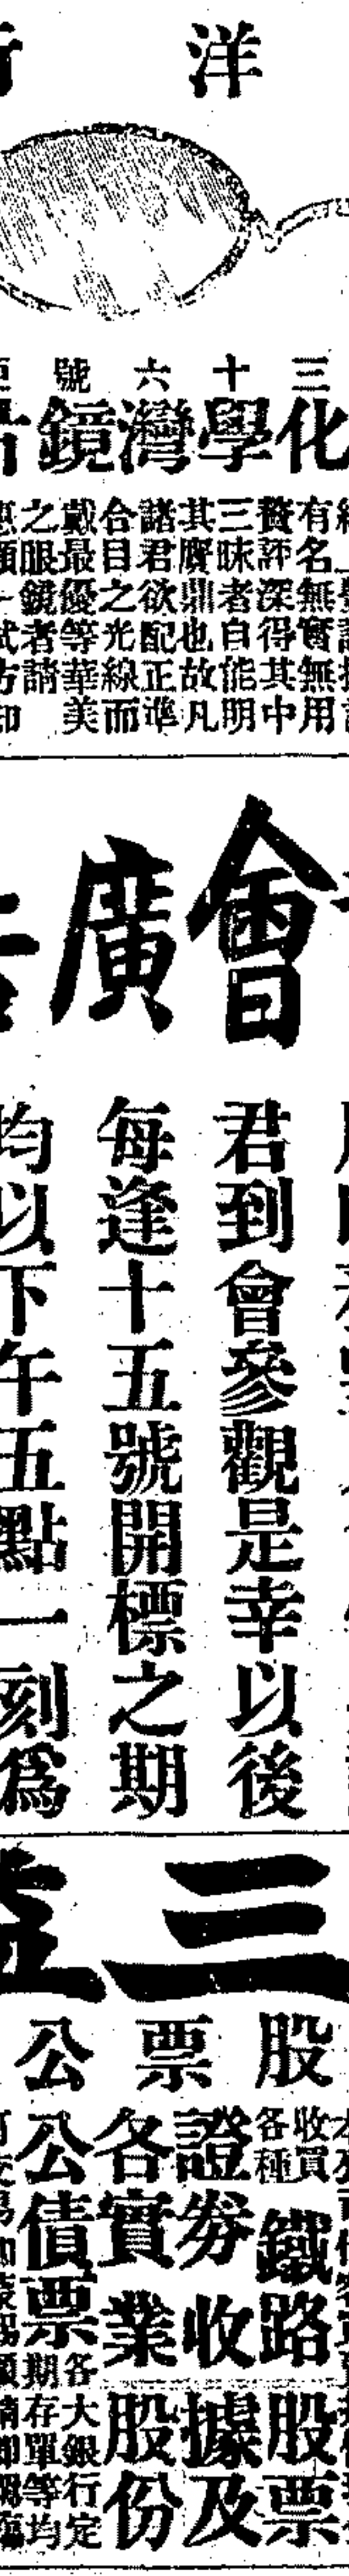 洋
三十六號
化學灣鏡
有名無實無用
贅評深得其中
三昧者自能明
其贋鼎也故凡
諸君欲配正準
合目之光線而
戴最優等華美
之眼鏡者請
會廣
君到會參觀是幸以後
每逢十五號開標之期
均以下午五點一刻爲
三
股票公
收買
各種
鐵路股票
證劵收據及
各實業股份
公債票
各大銀行定
期存單等均